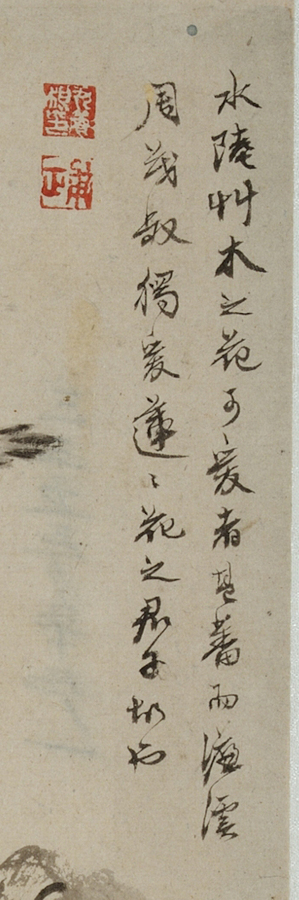 水陸艸木之花可愛者甚蕃而濂溪
周茂叔獨愛蓮〻花之君子故也